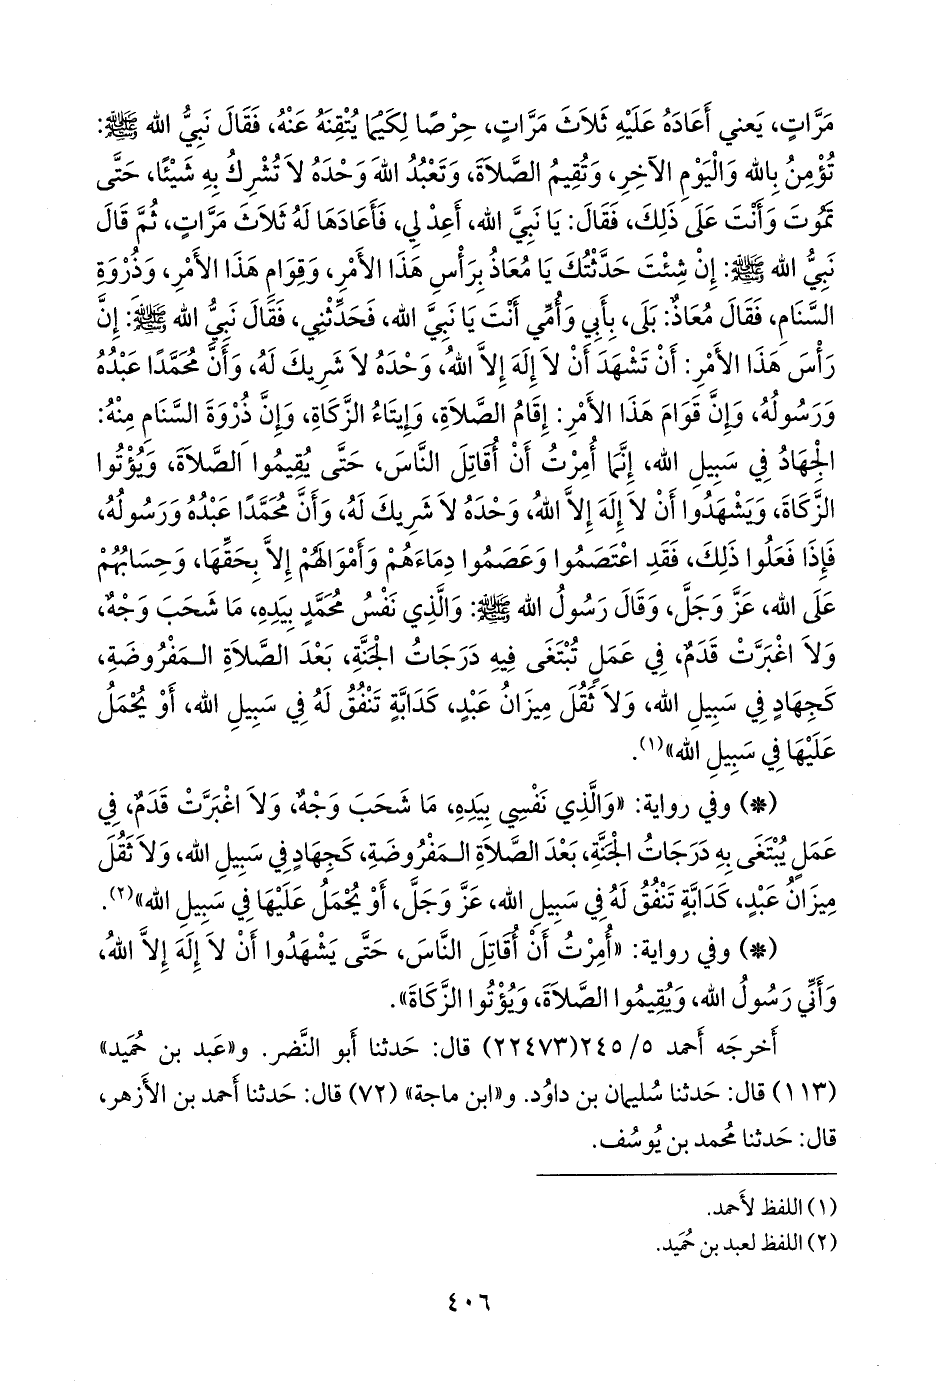 مَرَّاتٍ، يَعني أَعَادَهُ عَلَيْهِ ثَلاَثَ مَرَّاتٍ، حِرْصًا لِكَيْمَا يُتْقِنَهُ عَنْهُ، فَقَالَ نَبِيُّ الله ﷺ:
تُؤْمِنُ بِالله وَالْيَوْمِ الآخِرِ، وَتُقِيمُ الصَّلاَةَ، وَتَعْبُدُ اللهَ وَحْدَهُ لاَ تُشْرِكُ بِهِ شَيْئًا، حَتَّى
تَمُوتَ وَأَنْتَ عَلَى ذَلِكَ، فَقَالَ: يَا نَبِيَّ الله، أَعِدْ لِي، فَأَعَادَهَا لَهُ ثَلاَثَ مَرَّاتٍ، ثُمَّ قَالَ
نَبِيُّ الله ﷺ: إِنْ شِئْتَ حَدَّثْتُكَ يَا مُعَاذُ بِرَأْسِ هَذَا الأَمْرِ، وَقِوَامِ هَذَا الأَمْرِ، وَذُرْوَةِ
السَّنَامِ، فَقَالَ مُعَاذٌ: بَلَى، بِأَبِي وَأُمِّي أَنْتَ يَا نَبِيَّ الله، فَحَدِّثْنِي، فَقَالَ نَبِيُّ الله ﷺ: إِنَّ
رَأْسَ هَذَا الأَمْرِ: أَنْ تَشْهَدَ أَنْ لاَ إِلَهَ إِلاَّ اللهُ، وَحْدَهُ لاَ شَرِيكَ لَهُ، وَأَنَّ مُحَمَّدًا عَبْدُهُ
وَرَسُولُهُ، وَإِنَّ قَوَامَ هَذَا الأَمْرِ: إِقَامُ الصَّلاَةِ، وَإِيتَاءُ الزَّكَاةِ، وَإِنَّ ذُرْوَةَ السَّنَامِ مِنْهُ:
الْجِهَادُ فِي سَبِيلِ الله، إِنَّمَا أُمِرْتُ أَنْ أُقَاتِلَ النَّاسَ، حَتَّى يُقِيمُوا الصَّلاَةَ، وَيُؤْتُوا
الزَّكَاةَ، وَيَشْهَدُوا أَنْ لاَ إِلَهَ إِلاَّ اللهُ، وَحْدَهُ لاَ شَرِيكَ لَهُ، وَأَنَّ مُحَمَّدًا عَبْدُهُ وَرَسُولُهُ،
فَإِذَا فَعَلُوا ذَلِكَ، فَقَدِ اعْتَصَمُوا وَعَصَمُوا دِمَاءَهُمْ وَأَمْوَالَهُمْ إِلاَّ بِحَقِّهَا، وَحِسَابُهُمْ
عَلَى الله، عَزَّ وَجَلَّ، وَقَالَ رَسُولُ الله ﷺ: وَالَّذِي نَفْسُ مُحَمَّدٍ بِيَدِهِ، مَا شَحَبَ وَجْهٌ،
وَلاَ اغْبَرَّتْ قَدَمٌ، فِي عَمَلٍ تُبْتَغَى فِيهِ دَرَجَاتُ الْجَنَّةِ، بَعْدَ الصَّلاَةِ الـمَفْرُوضَةِ،
كَجِهَادٍ فِي سَبِيلِ الله، وَلاَ ثَقُلَ مِيزَانُ عَبْدٍ، كَدَابَّةٍ تَنْفُقُ لَهُ فِي سَبِيلِ الله، أَوْ يُحْمَلُ
عَلَيْهَا فِي سَبِيلِ الله»(١).
(*) وفي رواية: «وَالَّذِي نَفْسِي بِيَدِهِ، مَا شَحَبَ وَجْهٌ، وَلاَ اغْبَرَّتْ قَدَمٌ، فِي
عَمَلٍ يُبْتَغَى بِهِ دَرَجَاتُ الْجَنَّةِ، بَعْدَ الصَّلاَةِ الـمَفْرُوضَةِ، كَجِهَادٍ فِي سَبِيلِ الله، وَلاَ ثَقُلَ
مِيزَانُ عَبْدٍ، كَدَابَّةٍ تَنْفُقُ لَهُ فِي سَبِيلِ الله، عَزَّ وَجَلَّ، أَوْ يُحْمَلُ عَلَيْهَا فِي سَبِيلِ الله»(٢).
(*) وفي رواية: «أُمِرْتُ أَنْ أُقَاتِلَ النَّاسَ، حَتَّى يَشْهَدُوا أَنْ لاَ إِلَهَ إِلاَّ اللهُ،
وَأَنِّي رَسُولُ الله، وَيُقِيمُوا الصَّلاَةَ، وَيُؤْتُوا الزَّكَاةَ».
أَخرجَه أَحمد ٥/ ٢٤٥(٢٢٤٧٣) قال: حَدثنا أَبو النَّضر. و«عَبد بن حُميد»
(١١٣) قال: حَدثنا سُليمان بن داوُد. و«ابن ماجة» (٧٢) قال: حَدثنا أَحمد بن الأَزهر،
قال: حَدثنا مُحمد بن يُوسُف.
(١) اللفظ لأَحمد.
(٢) اللفظ لعبد بن حُميد.
٤٠٦